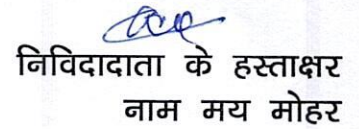 निविदादाता के हस्ताक्षर
नाम मय मोहर